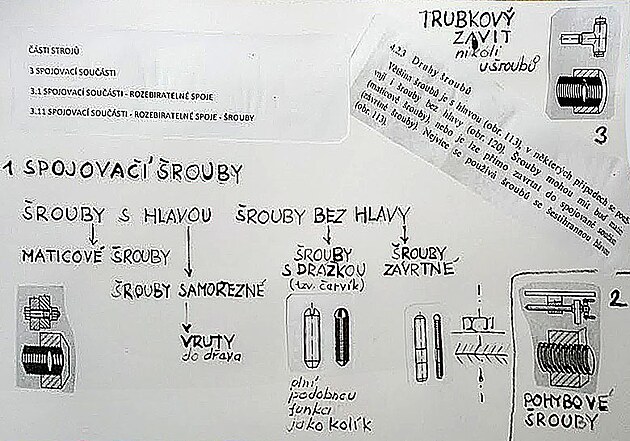 ČÁSTI STROJŮ
3 SPOJOVACÍ SOUČÁSTI
3.1 SPOJOVACÍ SOUČÁSTI - ROZEBIRATELNÉ SPOJE
3.11 SPOJOVACÍ SOUČÁSTI - ROZEBIRATELNÉ SPOJE - ŠROUBY
TRUBKOVÝ
ZÁVIT
nikoli
u šroubů
3
4.2.3 Druhy šroubů
Většina šroubů je s hlavou (obr. 113), v některých případech se
vají i šrouby bez hlavy (obr. 120). Šrouby mohou mít buď
(maticové šrouby), nebo je lze přímo zavrtat do spojované
(závrtné šrouby). Nejvíce se používá šroubů se šestihrannou hlavou
(obr. 113).
1 SPOJOVACÍ ŠROUBY
ŠROUBY S HLAVOU ŠROUBY BEZ HLAVY
MATICOVÉ ŠROUBY
ŠROUBY SAMOŘEZNÉ
VRUTY
do dřeva
ŠROUBY
S DRÁŽKOU
(tzv. červík)
ŠROUBY
ZÁVRTNÉ
plní
podobnou
funkci
jako kolík
2
POHYBOVÉ
ŠROUBY